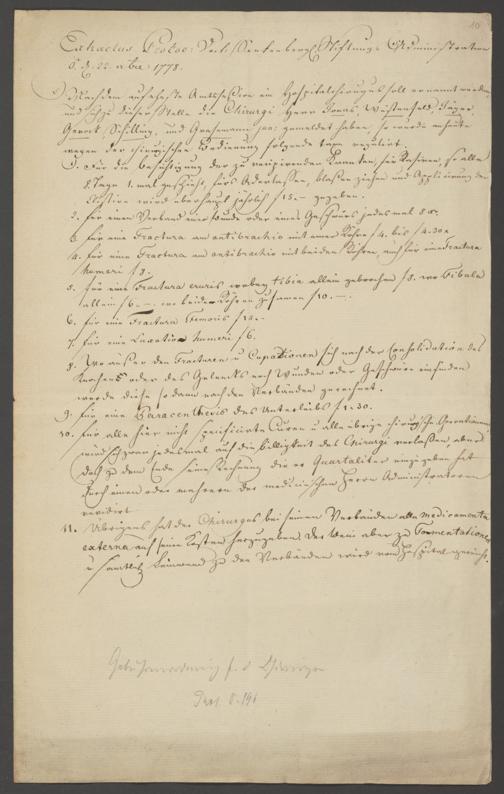 10
Extractus Protoc: Dr. Senckenberg. Stiftungs Administration
d. d. 22. Xbr. 1778.
Nachdem auf letzte Amts Session ein Hospital Chirurgus soll ernannt werden
und sich zu dieser Stelle die Chirurgi Herr Jonas, Jäger,
Gerret, Schilling, und gemeldet haben, so wurde
wegen der chirurgischen Bedienung folgende tax regulirt.
1. Für die Besichtigung der zu recipirenden Kranken, das Rasiren, so alle
8. Tage 1. mal geschieht, fürs Aderlassen, blasen ziehen und Applicirung der
Clystire wird überhaupt jährlich f 15.- gegeben.
2. für einen Verband einer Wunde oder eines Geschwürs jedes mal 8 xr.
3. für eine Fractura am antibrachio mit einer Röhre f 4. bis f 4.30 x
4. für eine Fractura am antibrachio mit beiden Röhren, auch für eine Fractura
humeri f 8.
5. für eine Fractura cruris wobey tibia allein gebrochen f 8. wo Fibula
allein f 6.-. wo beide Röhren zusamen f 10.-.
6. für eine Fractura Femoris f 15.-
7. für eine Luxation humeri f 6.
8. Wo außer den Fracturen u. Luxationen sich nach der Consolidation des
Knochens oder des Gelenks noch Wunden oder Geschwüre einfinden
werde diese so dann nach den Verbänden gerechnet.
9. für eine Paracenthesis des Unterleibs f 1.30.
10. für alle hier nicht specificirte Curen u. alle übrige chirurgische Operationen
wird sich zwar jedesmal auf die billigkeit des Chirurgi verlassen, aber
doch zu dem Ende seine Rechnung die er Quartaliter einzugeben hat
durch einen oder mehrere der medicinischen Herrn Administratoren
revidirt.
11. Übrigens hat der Chirurgus bei seinen Verbänden alle medicamenta
externa auf seine Kosten herzugeben, der Wein aber zu Fomentationen
u. sämtlich Leinwand zu den Verbänden wird vom Hospital gereicht.
Gebührenordnung f. d. Chirurgen